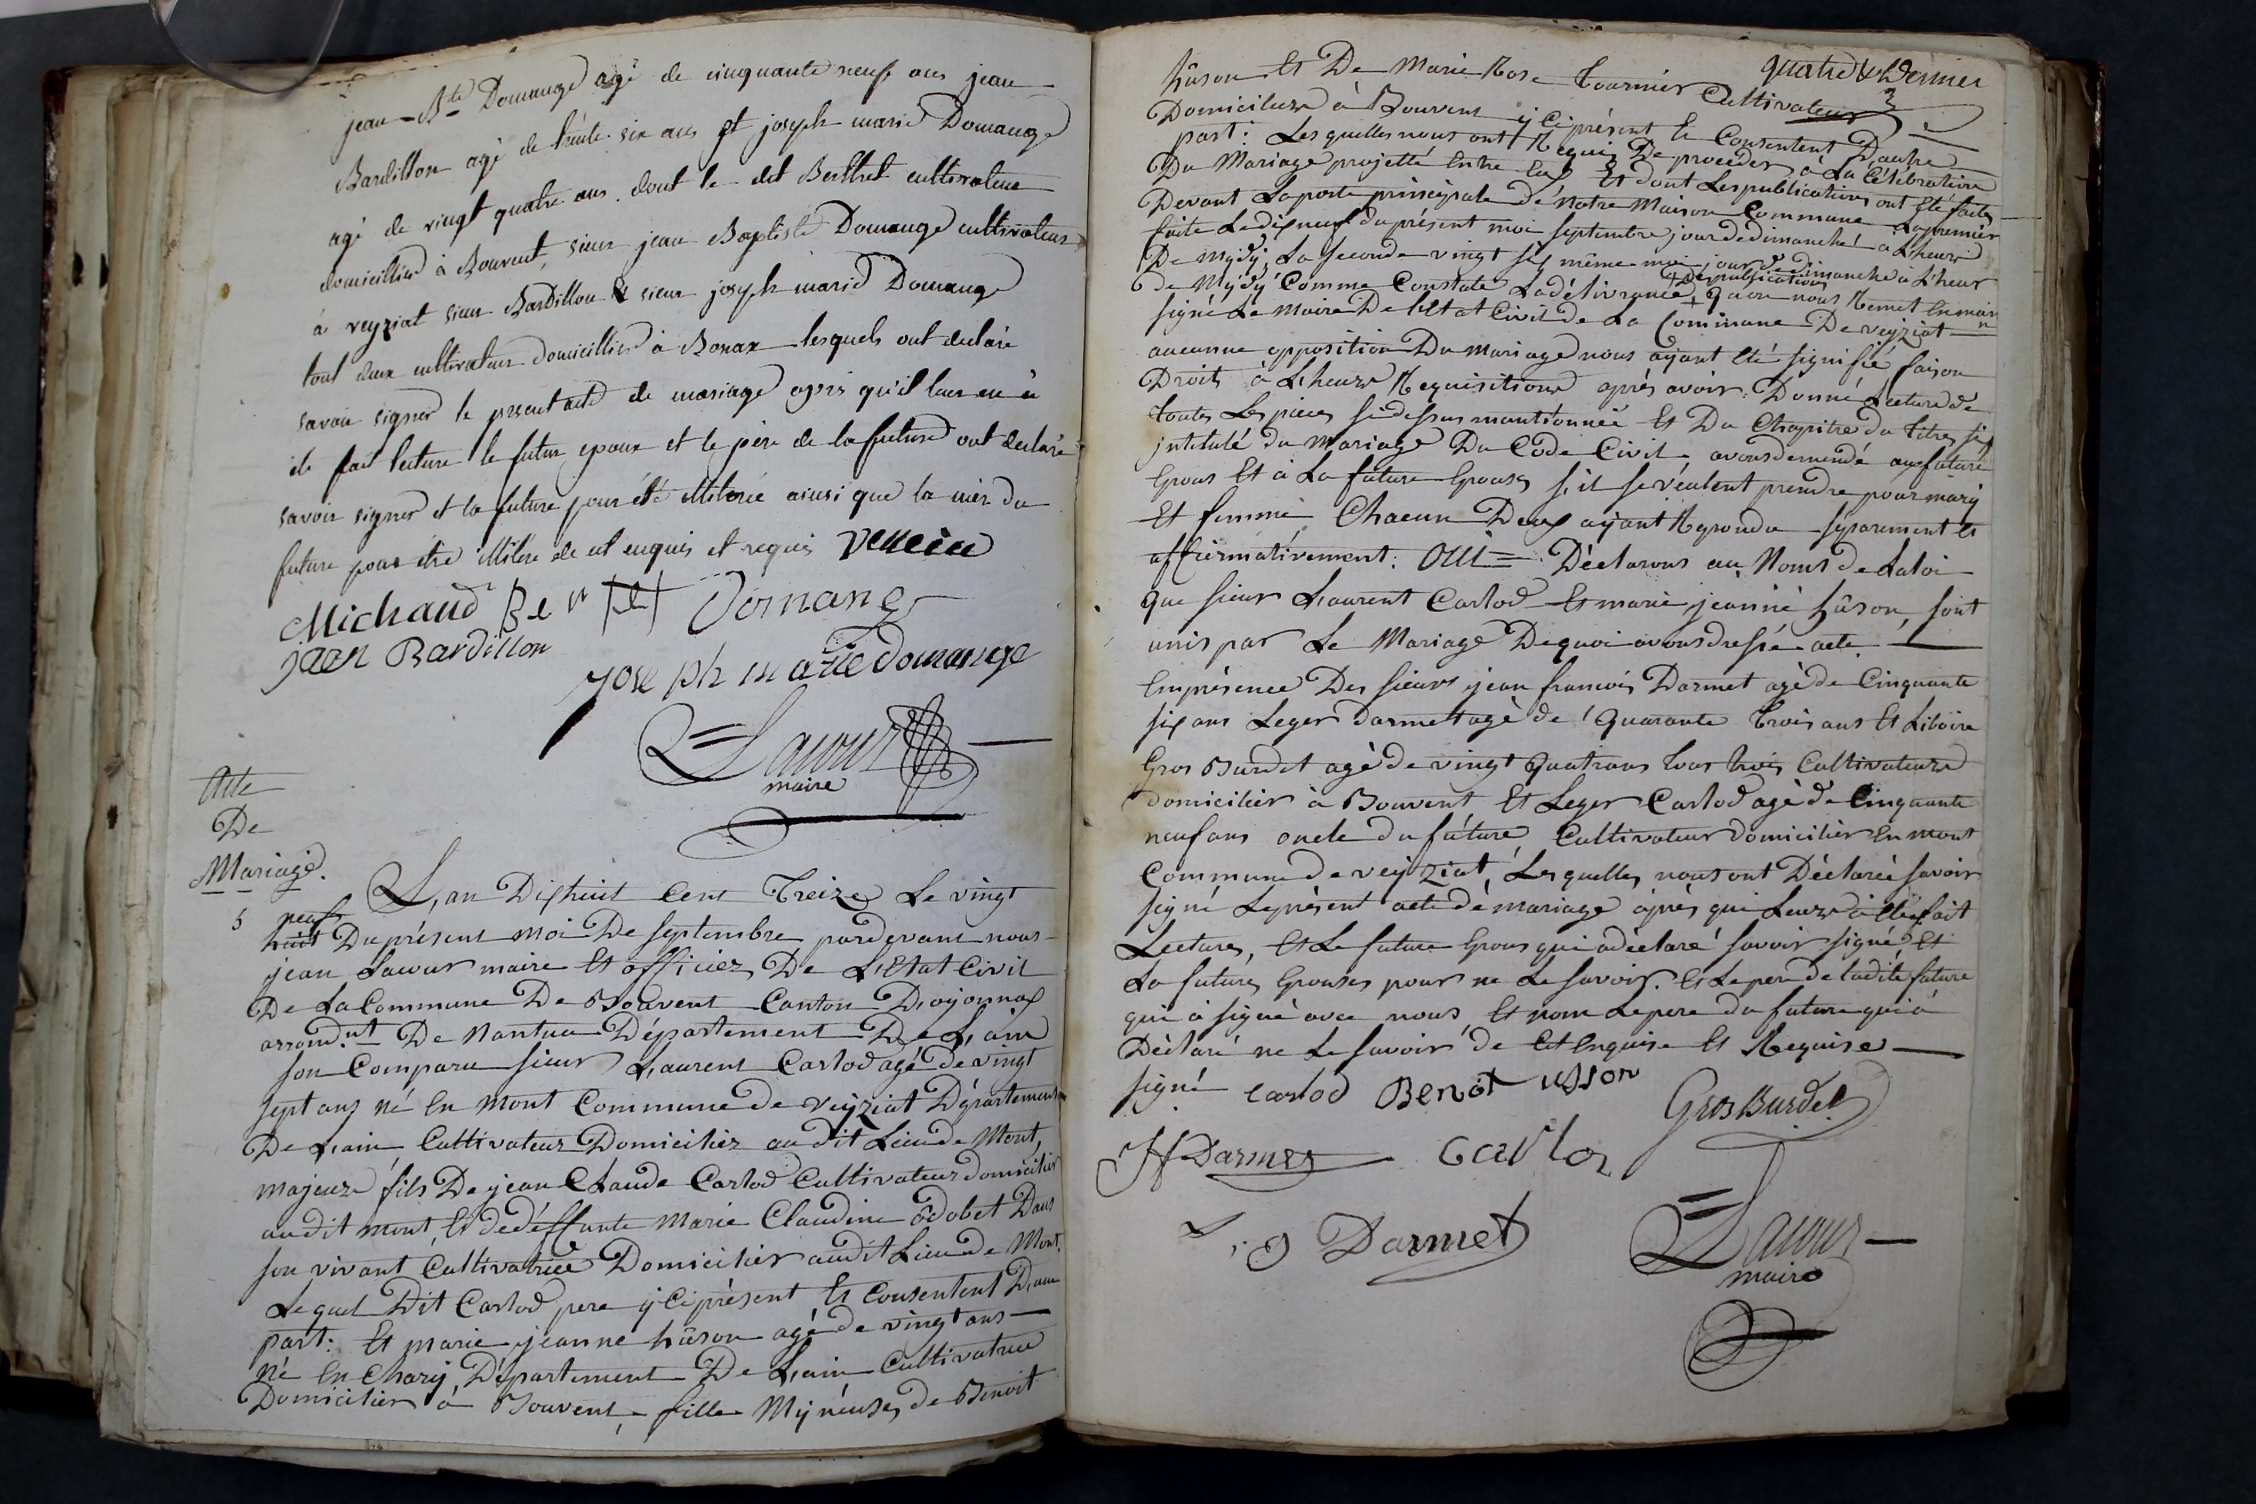 jean-Bte Domange agé de cinquante neuf ans jean
Bardillon agé de trente six ans et joseph marie Domange
agé de vingt quatre ans. dont le dit Berthet cultivateur
domicillié à Bouvent, sieur jean Baptiste Domange cultivateur
à veyziat sieur Bardillon & sieur joseph marie Domange
tout deux cultivateur domicillié à Bonax lesquels ont declaré
savoir signer le present acte de mariage apris qu'il leur en à
été fait lecture le futur epoux et le père de la future ont declaré
savoir signer et la future pour été illiterée ainsi que la mèr du
future pour être illitere de cet enquis et requis
Michaud Domange
jean Bardillon
joseph marie domange
Lacour
maire
Acte
De
Mariage.
5
L,an Dixhuit Cent Treize Le vingt
neuf
huit Du présent moi De septembre pardevant nous
jean Lacour maire Et officiez De L,Etat Civil
De La Commune De Bouvent Canton D,oyonnax
arrond.nt De Nantua Département De L,ain
son Comparu sieur Laurent Carlod agé de vingt
sept ans né En Mont Commune de veyziat Département
De L,ain, Cultivateur Domiciliez au dit Lieu de Mont,
majeure fils De jean Claude Carlod Cultivateur domicilier
audit mont, Et de déffunte Marie Claudine odobet Dans
son vivant Cultivatrice Domicilier audit Lieu de Mont.
Lequel Dit Carlod pere yCi présent Et Consentent D,une
part: Et marie jeanne hûson agé de vingt ans
né En Charij Département De L,ain Cultivatrice
Domicilier à Bouvent, fille Mynéuse, de Benoit
quatre & Dernier
hûson Et De Marie Rose Tournier Cultivateur
Domicilier à Bouvent yCi présent Et Consentent D,autre
part: Lesquelles nous ont Requis De proceder à La Célébration
Du Mariage projetté Entre Eux Et dont Les publications ont Eté faites
Devant La porte principale de Notre Maison Commune La premier
faite Le dixneuf du présent moi septembre jour de dimanche à L'heure
De mydy, La seconde vingt six même moi jour de dimanche à L'heur
+ De publication
de Mydy Comme Constate La délivrance + qu'on nous Remet En main
signé Le Maire De L'Etat Civil de La Commune De veyziat
aucunne opposition Du Mariage nous ayant Eté signifié faison
Droit à L'heure Requisitione après avoir Donné Lecture de
toutes Les pieces si dessus mantionnée Et Du Chapitre du titre six
jntitulé du Mariage Du Code Civil avons demendé au future
Epous Et à La future Epouse, s'il se véulent prendre pour mary
Et femme Chacun Deux ayant Repondu séparement Et
affiermativement. OUI = Déclarons au Noms de La loi
que sieur Laurent Carlod Et marie jeanne hûson, sont
unis par Le Mariage De quoi avons dressé acte.
En présence Des sieurs jean francois Darmet agé de Cinquante
six ans Leger Darmet agé de quarante Trois ans Et Liboire
Gros Burdet agé de vingt quatrans tous trois Cultivateurs
domicilier à Bouvent Et Leger Carlod agé de Cinquante
neuf ans oncle du future Cultivateur domicilier En mont
Commune de veyziat, Les quelles nous ont Déclareé savoir
signé Le présent acte de mariage après qui Leurs à Eté fait
Lecture, Et Le future Epous qui a déclaré savoir signé Et
La future, Epouses pour ne Le savoir. Et Le pere de Ladite future
qui à signé avec nous Et nom Le pere du future qui à
Déclaré ne Le savoir de Cet Enquise Et Requise
signé carlod Benoit usson
Gros Burdet
Jf Darmet Carlo
Darmet
Lacour
maire